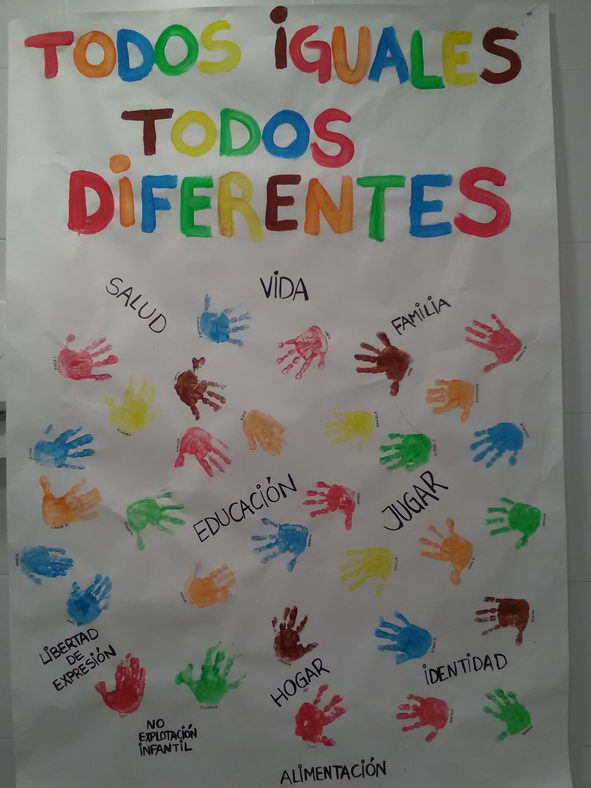 TODOS iGUALES
TODOS
DiFERENTES
SALUD
ViDA
FAMiLiA
EDUCACiÓN
JUGAR
LiBERTAD
DE
EXPRESiÓN
NO
EXPLOTACiÓN
iNFANTiL
HOGAR
iDENTiDAD
ALiMENTACiÓN